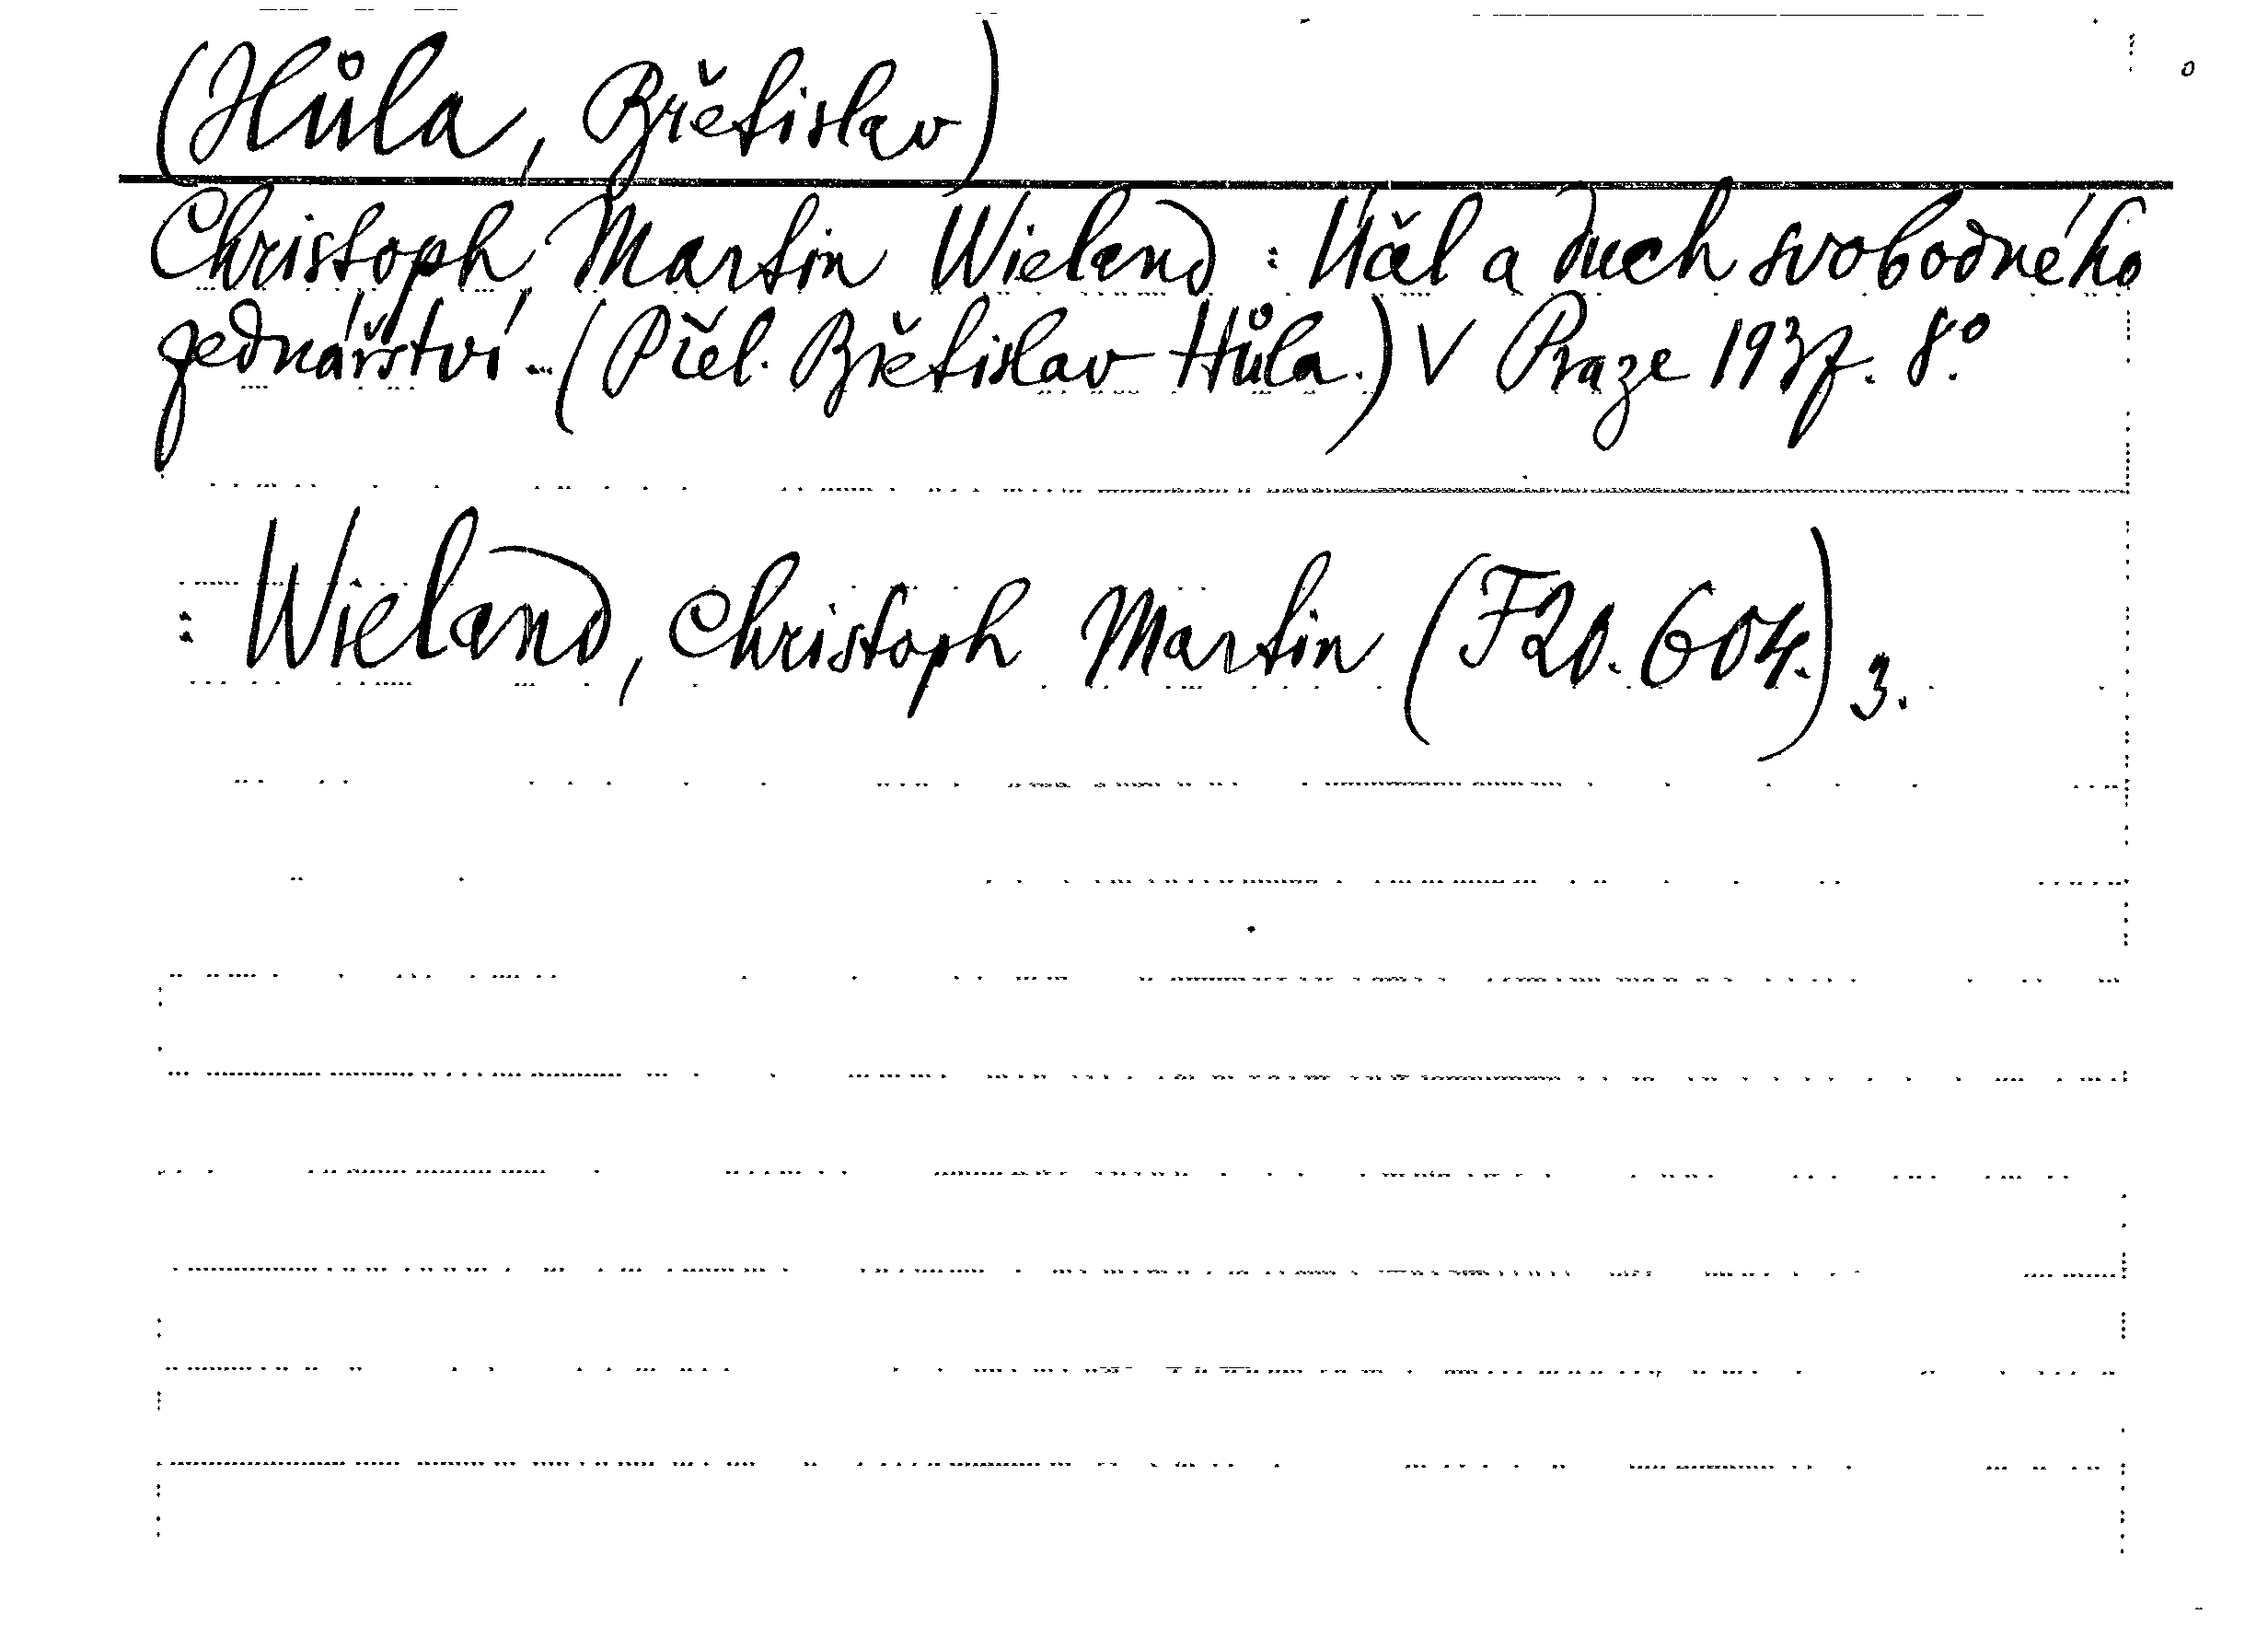 (Hůla, Břetislav)
Christoph Martin Wieland: Účel a duch svobodného
zednářství... (Přel. Břetislav Hůla.) V Praze 1937. 8°.
: Wieland, Christoph Martin (F20.604.) 3.